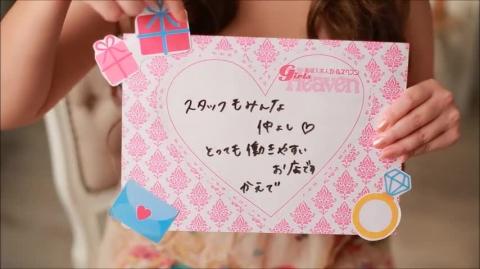 Girls
heaven
スタッフもみんな
仲よし♡
とっても働きやすい
お店です
かえで